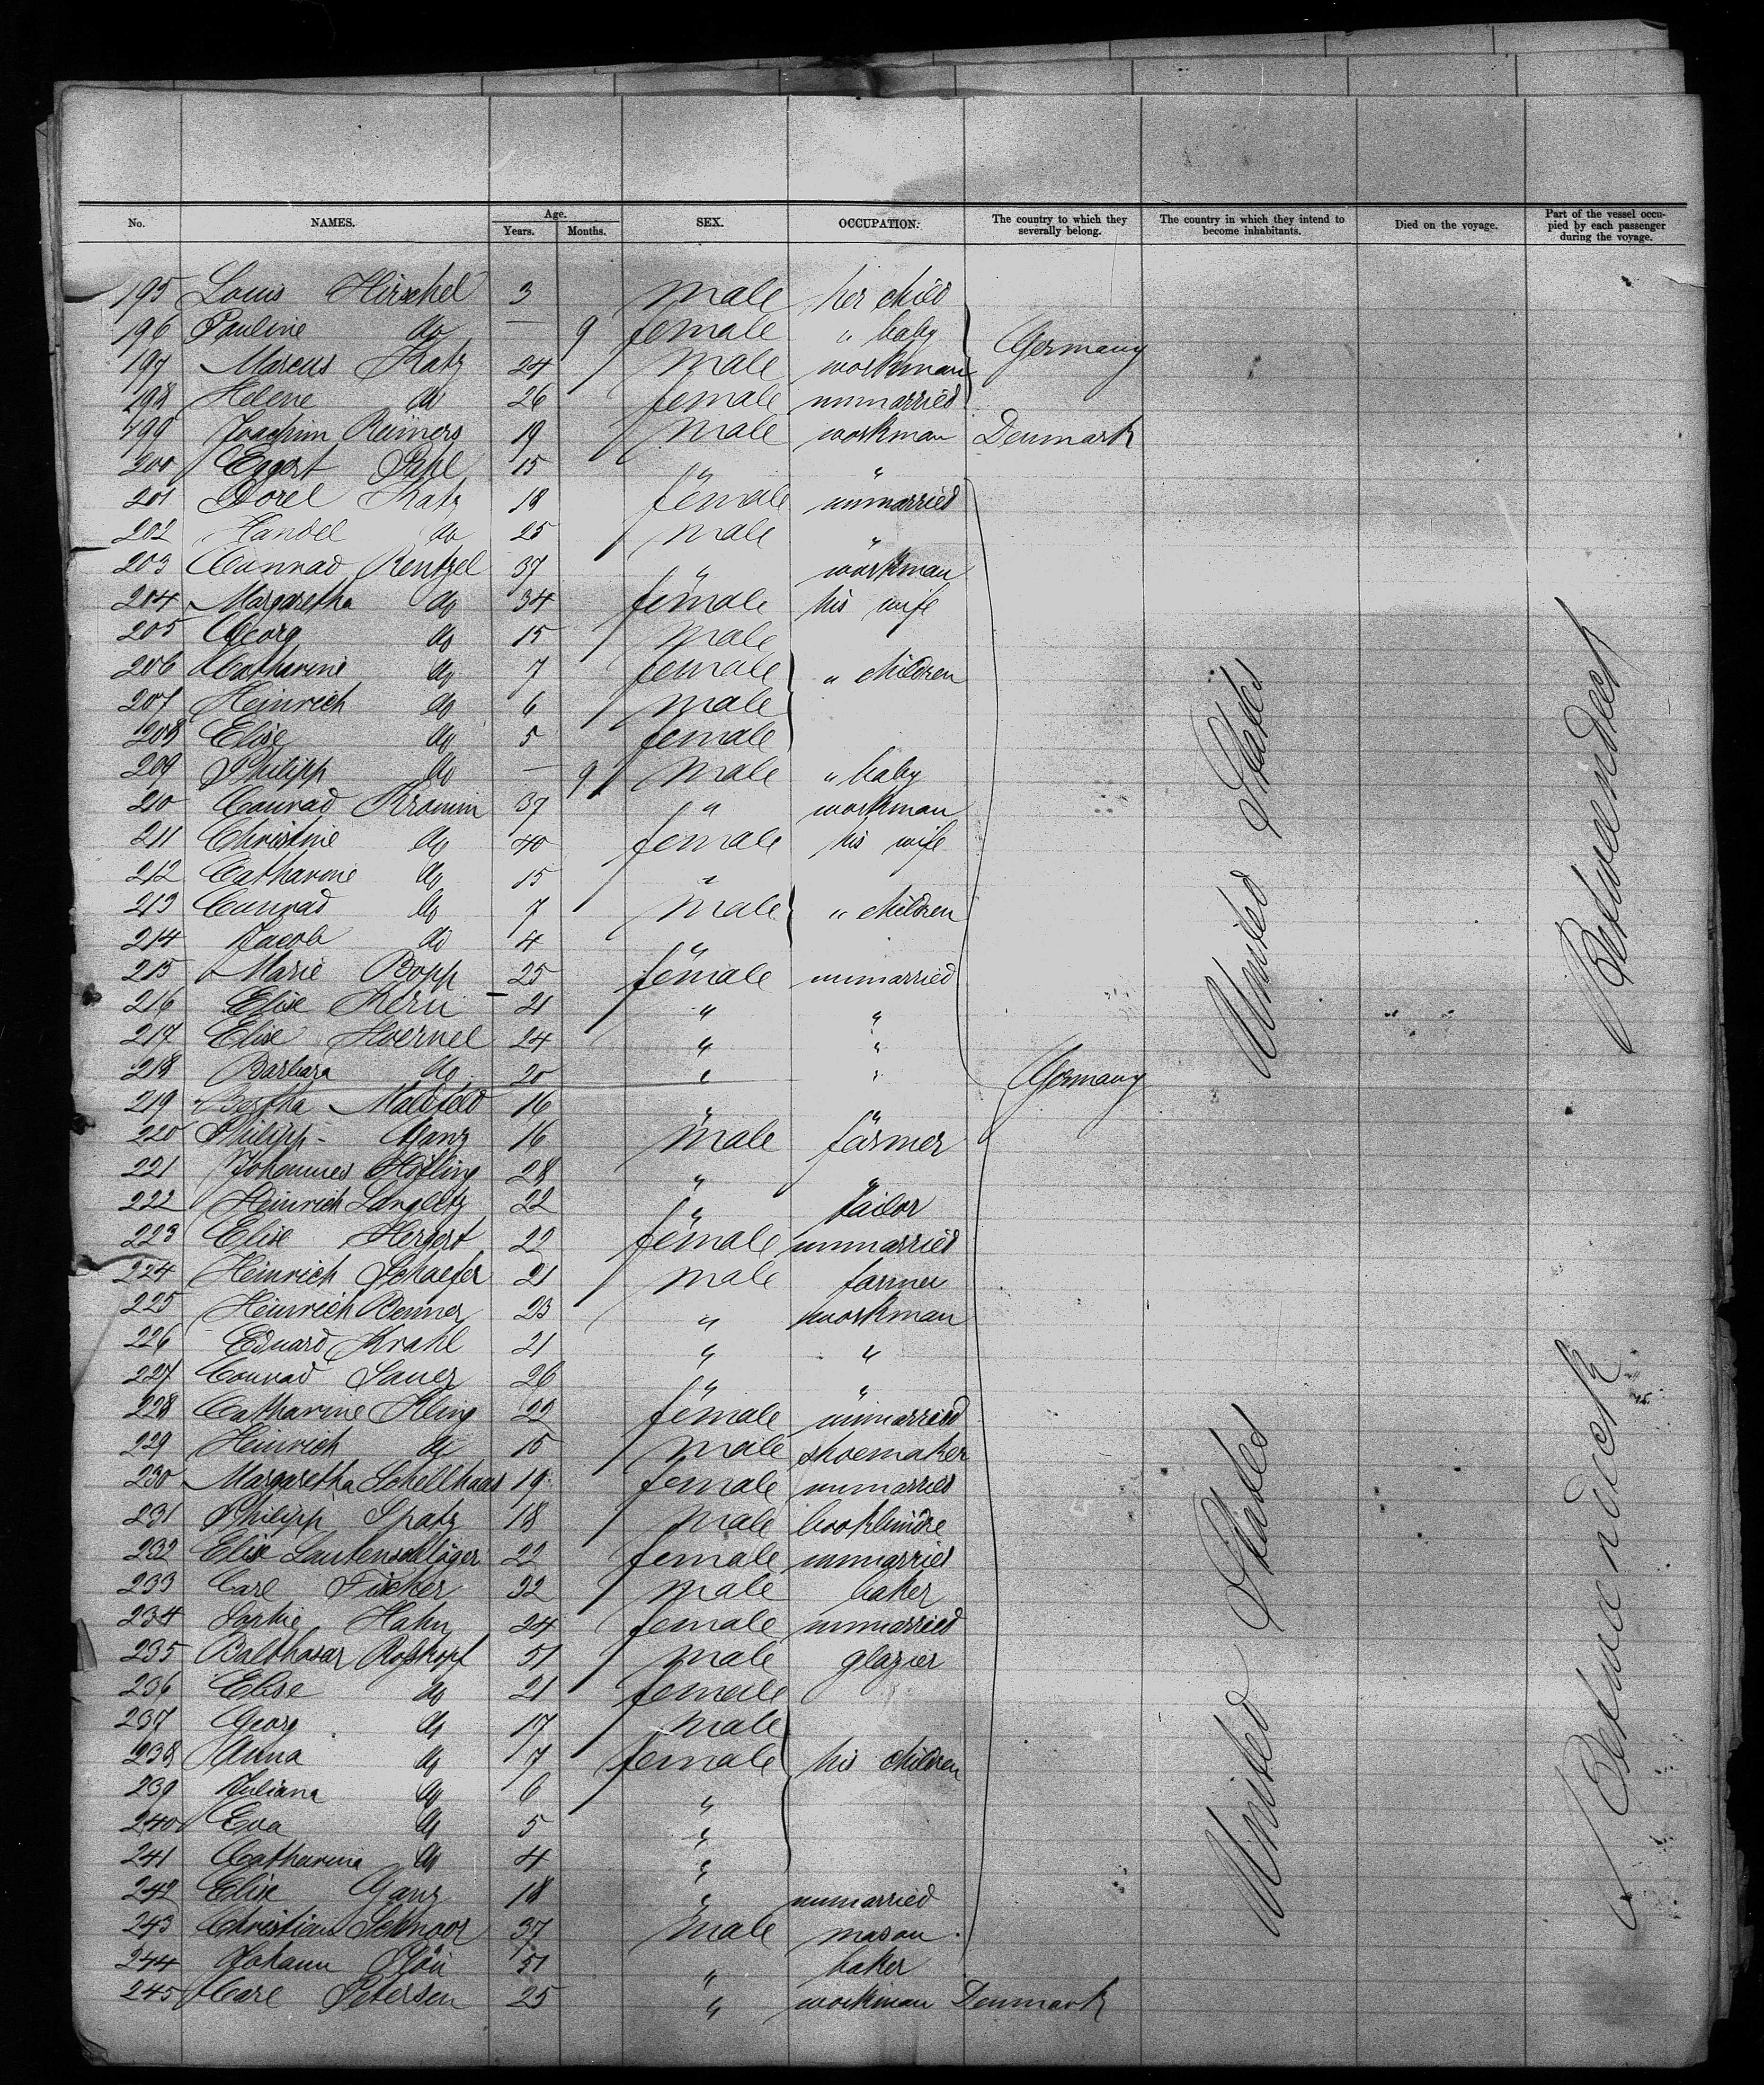 No. NAMES. Age. Years. Months. SEX. OCCUPATION. The country to which they severally belong. The country in which they intend to become inhabitants. Died on the voyage. Part of the vessel occupied by each passenger during the voyage.
195 Louis Hirschel 3 male her child
196 Pauline do — 9 female " baby
197 Marcus Katz 24 male workman Germany
198 Helene do 26 female unmarried
199 Joachim Reimers 19 male workman Denmark
200 Eggert Pahl 15 " "
201 Dorel Katz 18 female unmarried
202 Handel do 25 male "
203 Cunrad Rentzel 37 " workman
204 Margaretha do 34 female his wife
205 Georg do 15 male
206 Catharine do 7 female " children
207 Heinrich do 6 male
208 Elise do 5 female
209 Philipp do — 9 male " baby
210 Conrad Kromm 37 " workman
211 Christine do 40 female his wife
212 Catharine do 15 "
213 Cunrad do 7 male " children
214 Jacob do 4 "
215 Marie Bopp 25 female unmarried
216 Elise Kern 21 " "
217 Elise Hoernel 24 " "
218 Barbara do 20 " " Germany
219 Bertha Maldfeld 16 " "
220 Philipp Ganz 16 male farmer
221 Johannes Höfling 28 " "
222 Heinrich Langletz 22 " tailor
223 Elise Hergert 22 female unmarried
224 Heinrich Schaefer 21 male farmer
225 Heinrich Benner 23 " workman
226 Eduard Krahl 21 " "
227 Conrad Sauer 26 " "
228 Catharine Kling 22 female unmarried
229 Heinrich do 15 male shoemaker
230 Margaretha Schellhaas 19 female unmarried
231 Philipp Spatz 18 male bookbindre
232 Elise Lautenschläger 22 female unmarried
233 Carl Fischer 32 male baker
234 Sophie Hahn 24 female unmarried
235 Balthasar Roßkopf 51 male glazier
236 Elise do 21 female
237 Georg do 17 male
238 Anna do 7 female his children
239 Juliana do 6 "
240 Eva do 5 "
241 Catharina do 4 "
242 Elise Ganz 18 " unmarried
243 Christian Schnoor 37 male mason
244 Johann Plön 51 " baker
245 Carl Petersen 25 " workman Denmark
United States
Betweendeck
United States
Betweendeck